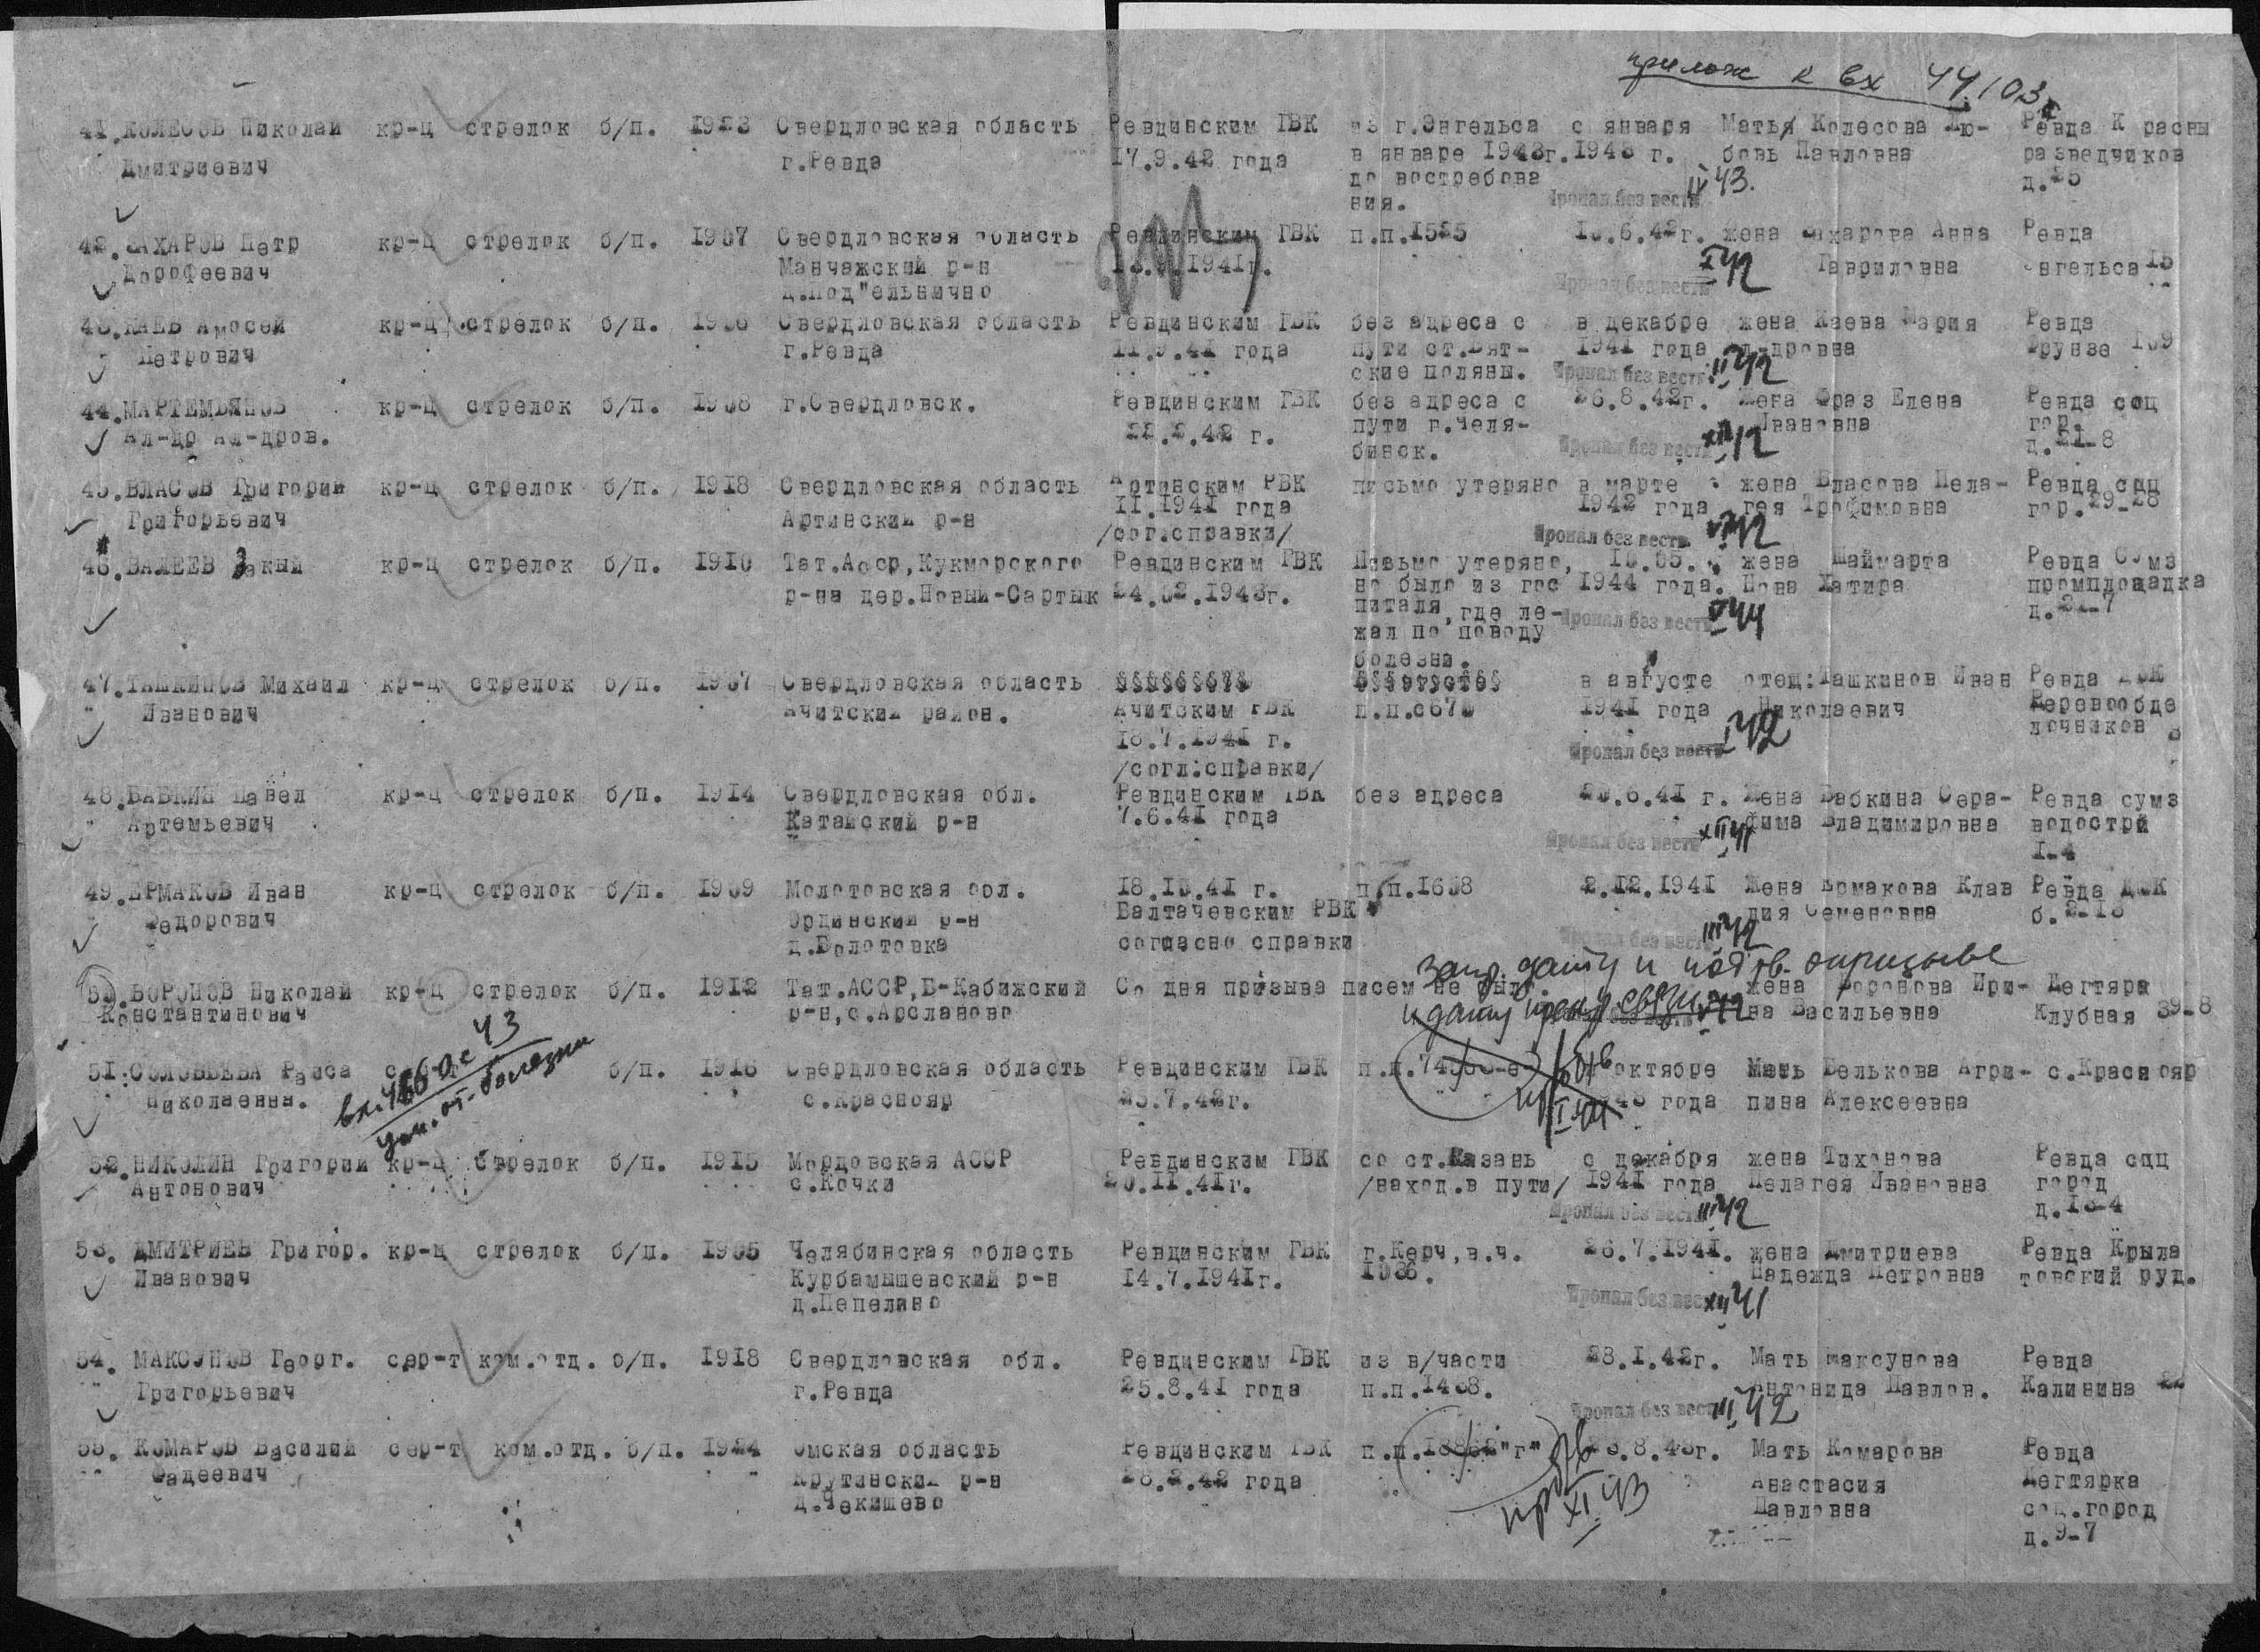 прилож к вх 44103с
41. КОЛЕСОВ Николай кр-ц стрелок б/п. 1923 Свердловская область Ревдинским ГВК из г.Энгельса с января Мать Колесова Лю- Ревда Красны
Дмитриевич г.Ревда 17.9.42 года в январе 1943г. 1943 г. бовь Павловна разведчиков
до востребова д.25
ния. Пропал без вести IV 43.
42. ЗАХАРОВ Петр кр-ц стрелок б/п. 1907 Свердловская область Ревдинским ГВК п.п.1525 жена Захарова Анна Ревда
Дорофеевич Манчажский р-н 1941г. Гавриловна Энгельса 15
д.Под"ельнично Пропал без вести X 42
43. КАЕВ Амосей кр-ц стрелок б/п. Свердловская область Ревдинским ГВК без адреса с в декабре жена Каева Мария Ревда
Петрович г.Ревда 11.9.41 года пути ст.Вят- 1941 года Ал-дровна Фрунзе 109
ские поляны. Пропал без вести II 42
44. МАРТЕМЬЯНОВ кр-ц стрелок б/п. 1908 г.Свердловск. Ревдинским ГВК без адреса с 26.8.42г. Жена Фраз Елена Ревда соц
Ал-др Ал-дров. 22.2.42 г. пути г.Челя- Ивановна гор.
бинск. Пропал без вести XII 42 д.21-8
45. ВЛАСОВ Григорий кр-ц стрелок б/п. 1918 Свердловская область Артинским РВК письмо утеряно в марте жена Власова Пела- Ревда соц
Григорьевич Артинский р-н 11.1941 года 1942 года гея Трофимовна гор.29-28
/сог.справки/ Пропал без вести 42
46. ВАЛЕЕВ Закий кр-ц стрелок б/п. 1910 Тат.Асср,Кукморского Ревдинским ГВК Письмо утеряно, 10.05. жена Шаймарта Ревда Сумз
р-на дер.Новый-Сартык 24.02.1943г. но было из гос 1944 года. нова Хатира промплощадка
питаля,где ле- Пропал без вести 44 д.21-7
жал по поводу
болезни.
47. ТАШКИНОВ Михаил кр-ц стрелок б/п. 1907 Свердловская область в августе отец:Ташкинов Иван Ревда ДОК
Иванович Ачитский район. Ачитским РВК 1941 года Николаевич Деревообде
18.7.1941 г. лочников
/согл.справки/ Пропал без вести 42
48. БАБКИН Павел кр-ц стрелок б/п. 1914 Свердловская обл. Ревдинским ГВК без адреса 6.41 г. Жена Бабкина Сера- Ревда сумз
Артемьевич Катайский р-н 7.6.41 года фима Владимировна водостри
Пропал без вести XII 41 1-4
49. ЕРМАКОВ Иван кр-ц стрелок б/п. 1909 Молотовская обл. 18.10.41 г. п.п.1608 2.12.1941 Жена Ермакова Клав Ревда ДОК
Федорович Ординский р-н Балтачевским РВК дия Семеновна б.2-18
д.Болотовка согласно справки Пропал без вести III 42
запр. дату и подтв. о призыве
50. ВОРОНОВ Николай кр-ц стрелок б/п. 1912 Тат.АССР,Б-Кабижский Со дня призыва писем не было. жена Воронова Ири- Дегтярк
Константинович р-н,с.Арсланово и дату прекр связи 42 на Васильевна Клубная 39-8
51. СОЛОВЬЕВА Раиса б/п. 1918 Свердловская область Ревдинским ГВК п.п. октябре Мать Белькова Агри- с.Краснояр
Николаевна. с.Краснояр 25.7.42г. года пина Алексеевна
ум. от болезни
52. НИКОЛИН Григорий кр-ц стрелок б/п. 1915 Мордовская АССР Ревдинским ГВК со ст.Казань с декабря жена Тихонова Ревда соц
Антонович с.Кочки 20.11.41г. /наход.в пути/ 1941 года Пелагея Ивановна город
Пропал без вести III 42 д.13-4
53. ДМИТРИЕВ Григор. кр-ц стрелок б/п. 1905 Челябинская область Ревдинским ГВК г.Керч,в.ч. 26.7.1941. жена Дмитриева Ревда Крыла
Иванович Курбамышевский р-н 14.7.1941г. Надежда Петровна товский руд.
д.Пепелино Пропал без вести XII 41
54. МАКСУНОВ Георг. сер-т ком.отд. б/п. 1918 Свердловская обл. Ревдинским ГВК из в/части 28.1.42г. Мать Максунова Ревда
Григорьевич г.Ревда 25.8.41 года п.п.1438. Антонида Павлов. Калинина 22
Пропал без вести III 42
55. КОМАРОВ Василий сер-т ком.отд. б/п. 1924 Омская область Ревдинским ГВК п.п. "г" 8.43г. Мать Комарова Ревда
Фадеевич Крутинский р-н 28.2.42 года Анастасия Дегтярка
д.Чекишево Павловна соц.город
XI 43 д.9-7